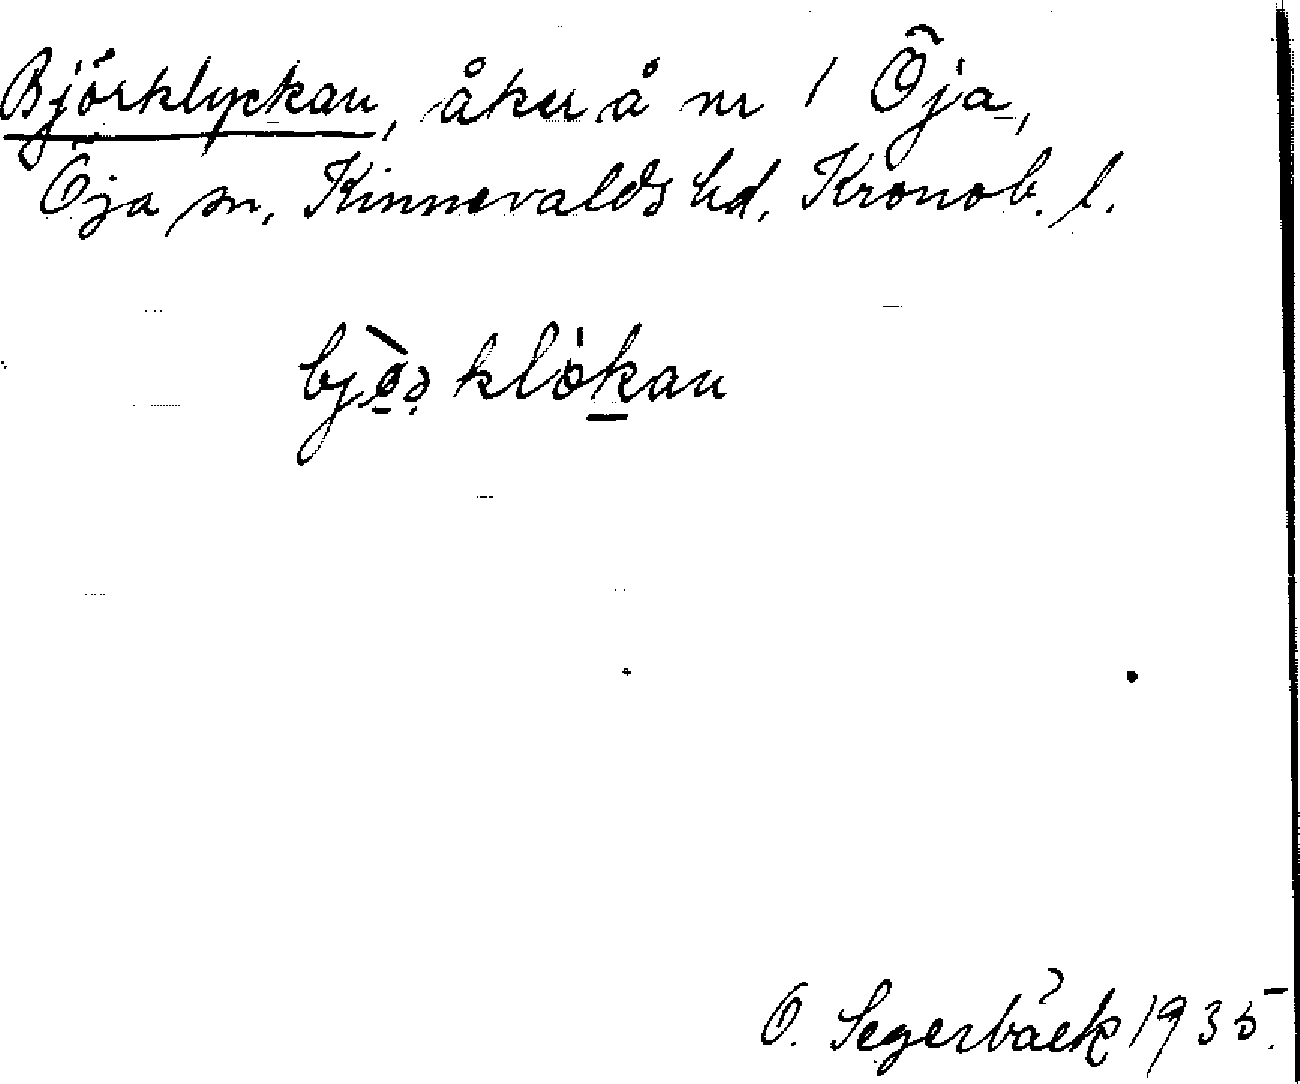 Björklyckan, åker å nr 1 Öja,
Öja sn, Kinnevalds hd, Kronob. l.
O. Segerbäck 1935.